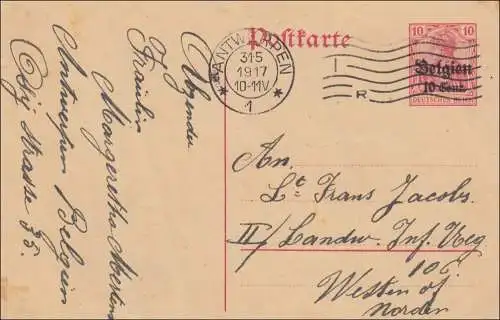 Postkarte
ANTWERPEN
31 5
1917
10-11V
* 1 *
I
R
10 10
Belgien
10 Cent.
DEUTSCHES REICH
Absender
Fräulein
Margeretha Mertens
Antwerpen Belgien
strasse 35.
An.
Lt. Frans Jacobs.
II/ Landw. Inf. Reg
106.
Westen of
Norden